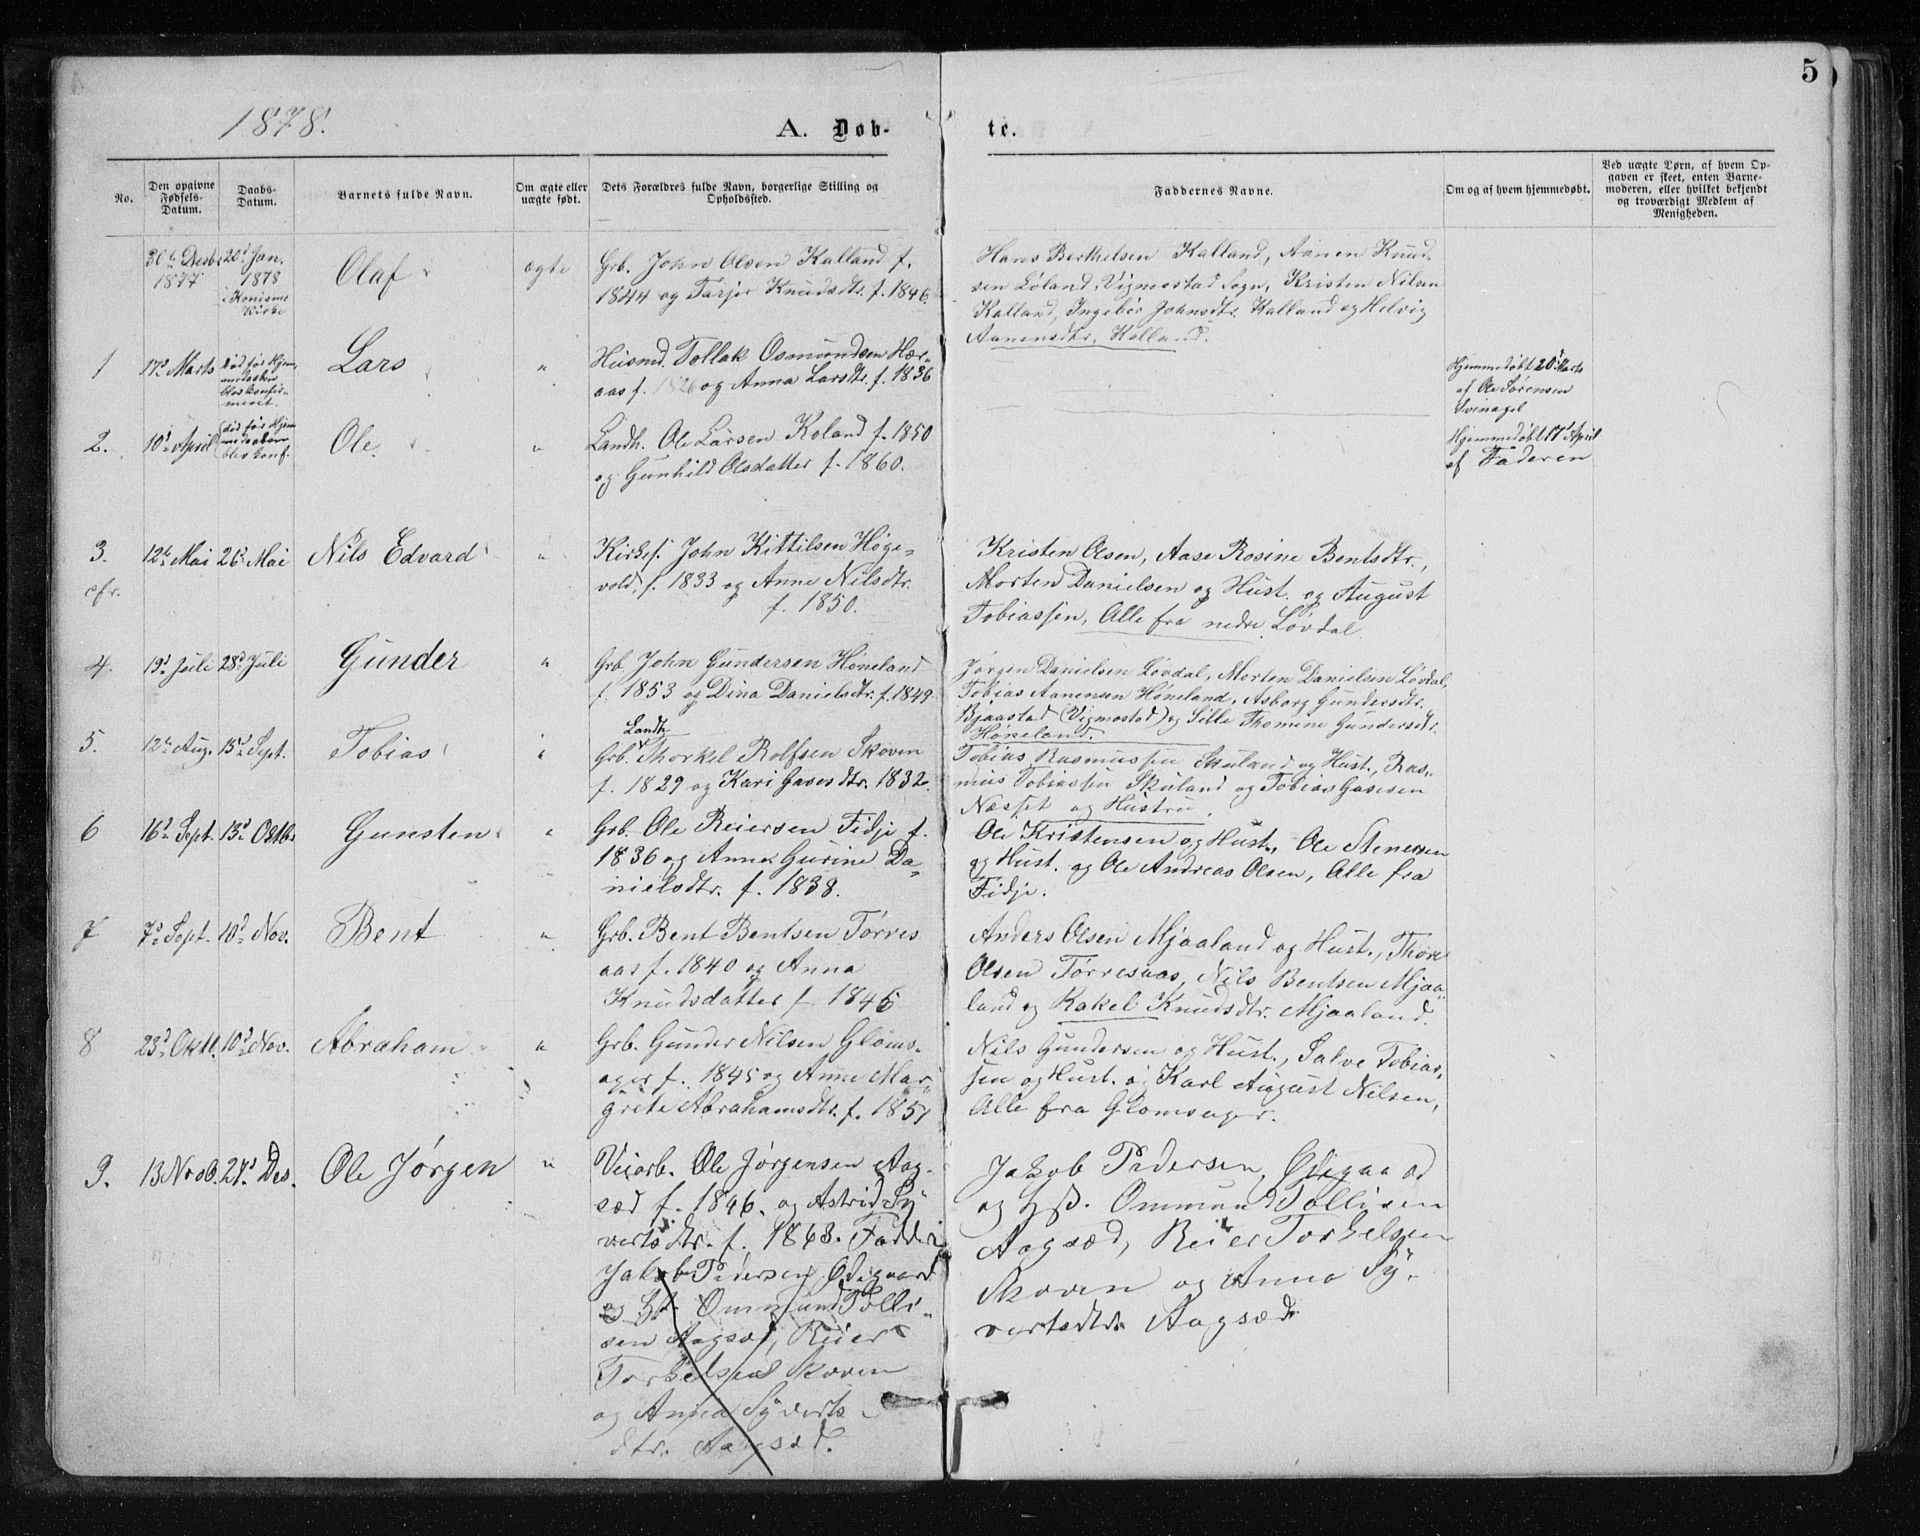 5
1878.
A. Døb-
te.
No.
Den opgivne Fødsels-Datum.
Daabs-Datum.
Barnets fulde Navn.
Om ægte eller uægte født.
Dets Forældres fulde Navn, borgerlige Stilling og Opholdssted.
Faddernes Navne.
Om og af hvem hjemmedøbt.
Ved uægte Børn, af hvem Op-
gaven er skeet, enten Barne-
moderen, eller hvilket bekjendt
og troværdigt Medlem af
Menigheden.
30te Desbr 1877
20d Jan. 1878 i Konismo Kirke
Olaf
ægte
Grb. John Olsen Kalland f.
1844 og Tarjer Knudsdtr. f. 1846.
Hans Berthelsen Kalland, Aanen Knud-
sen Løland, Vigmostad Sogn, Kristen Nilsen
Kalland, Ingebor Johnsdtr. Kalland og Helvig
Aanensdtr. Kalland.
1
17d Marts
død før Hjem-
medaaben
blev konfir-
meret.
Lars
"
Husmd. Tollak Osmundsen Hær-
aas f. 1826 og Anna Larsdtr. f. 1836
Hjemmedøbt 20d Marts
af Ole Sørensen
Svinagel
2.
10d April
død før Hjem
medaaben
blev konf.
Ole.
"
Landh. Ole Larsen Koland f. 1850
og Gunhild Olsdatter f. 1860.
Hjemmedøbt 17d April
af Faderen
3.
cfr.
12te Mai
26d Mai
Nils Edvard
"
Kirkes. John Kittilsen Høge-
vold, f. 1833 og Anne Nilsdtr.
f. 1850.
Kristen Olsen, Aase Rosine Bentsdtr.,
Morten Danielsen og Hust. og August
Tobiassen, Alle fra nedre Løvdal
4.
19d Juli
28d Juli
Gunder
"
Grb. John Gundersen Høneland
f. 1853 og Dina Danielsdtr. f. 1849.
Jørgen Danielsen Løvdal, Morten Danielsen Løvdal,
Tobias Aanensen Høneland, Asborg Gundersdtr.
Bjaastad (Vigmostad) og Sille Thomine Gundersdtr.
Høneland.
5.
12te Aug.
15d Sept.
Tobias
"
Landh.
Grb. Thorkel Rolfsen Skoven
f. 1829 og Kari Gasesdtr. 1832.
Tobias Rasmussen Skuland og Hust., Ras-
mus Tobiassen Skuland og Tobias Gasesen
Næsset og Hustru.
6
16d Sept.
13d Oktb.
Gunsten
"
Grb. Ole Reiersen Fidje f.
1836 og Anne Gurine Da-
nielsdtr. f. 1838.
Ole Kristensen og Hust., Ole Stenersen
og Hust. og Ole Andreas Olsen, Alle fra
Fidje.
7
7d Sept.
10d Nov.
Bent
"
Grb. Bent Bentsen Tørres
aas f. 1840 og Anna
Knudsdatter f. 1846
Anders Olsen Mjaaland og Hust., Thore
Olsen Tørresaas, Nils Bentsen Mjaa-
land og Rakel Knudsdtr. Mjaaland.
8
23d Oktb.
10d Nov.
Abraham
"
Grb. Gunder Nilsen Gloms-
ager f. 1845 og Anne Mar-
grete Abrahamsdtr. f. 1857
Nils Gundersen og Hust., Salve Tobias-
sen og Hust. og Karl August Nilsen,
Alle fra Glomsager.
9.
13 Novb.
27d Des.
Ole Jørgen
"
Veiarb. Ole Jørgensen Aag-
sæd f. 1846. og Astrid Sy-
vertsdtr. f. 1863. Faddere
Jakob Pedersen Ødegaard
og H. Ommund Tolli-
sen Aagsæd, Reier
Torkelsen Skoven
og Anna Syverts
dtr. Aagsæd.
Jakob Pedersen Ødegaard
og H. Ommund Tollisen
Aagsæd, Reier Torkelsen
Skoven og Anna Sy-
vertsdtr. Aagsæd